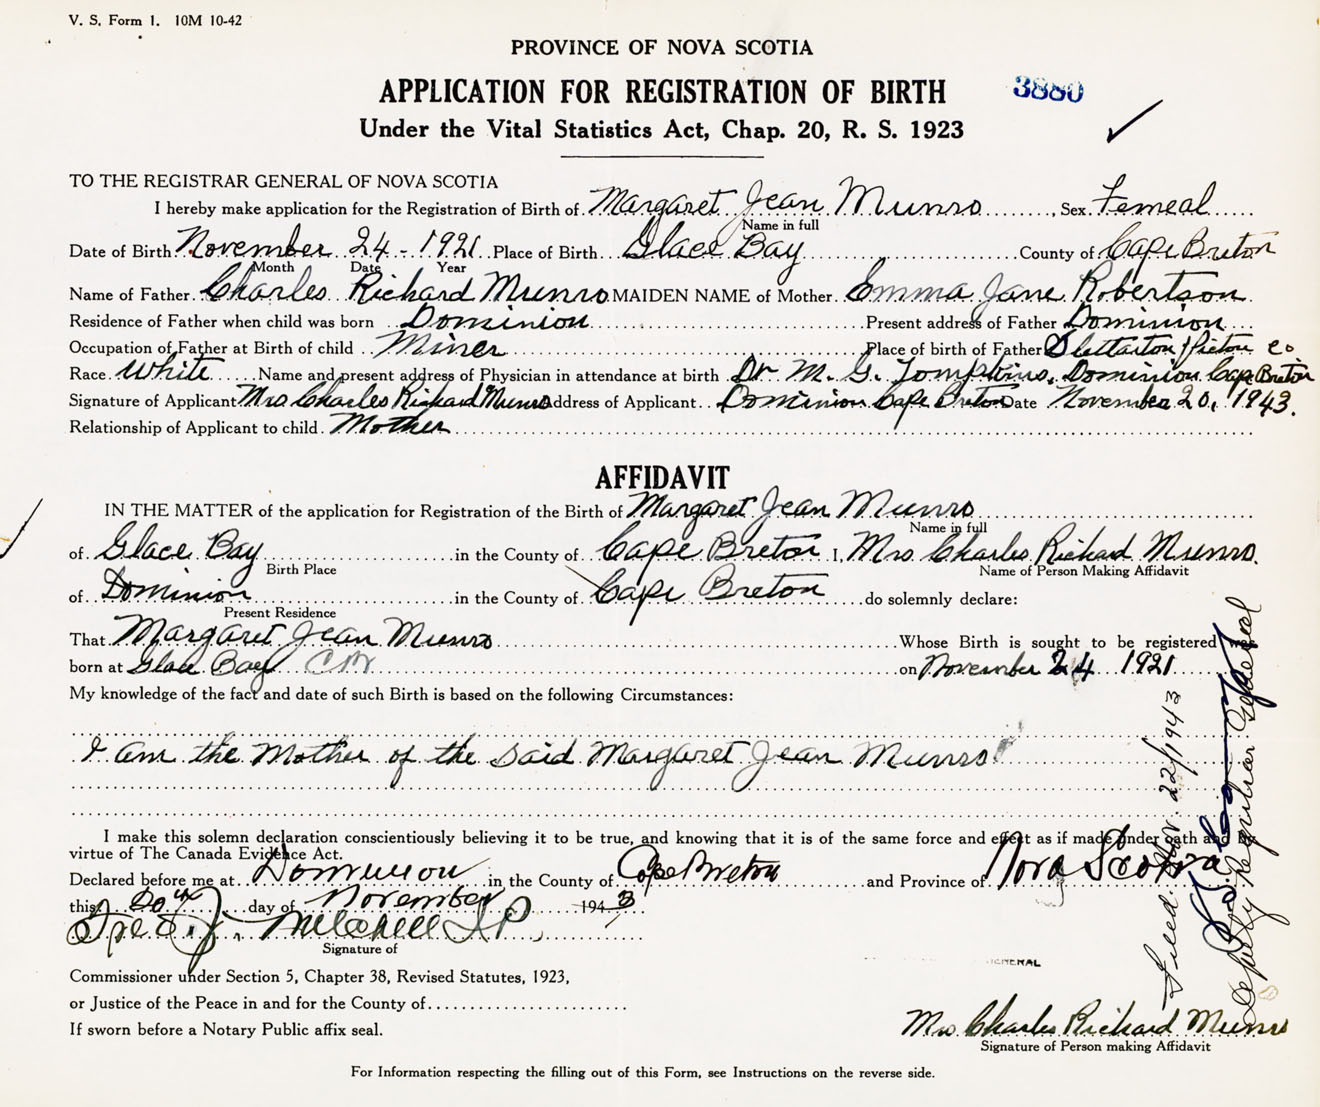 V. S. Form 1. 10M 10-42
PROVINCE OF NOVA SCOTIA
APPLICATION FOR REGISTRATION OF BIRTH 3880
Under the Vital Statistics Act, Chap. 20, R. S. 1923
TO THE REGISTRAR GENERAL OF NOVA SCOTIA
I hereby make application for the Registration of Birth of Margaret Jean Munro, Sex Femeal
Name in full
Date of Birth November 24-1921 Place of Birth Glace Bay County of Cape Breton
Month Date Year
Name of Father Charles Richard Munro MAIDEN NAME of Mother Emma Jane Robertson
Residence of Father when child was born Dominion Present address of Father Dominion
Occupation of Father at Birth of child Miner Place of birth of Father Stellarton Pictou Co
Race White Name and present address of Physician in attendance at birth Dr M. G. Tompkins, Dominion Cape Breton
Signature of Applicant Mrs Charles Richard Munro Address of Applicant Dominion Cape Breton Date November 20, 1943.
Relationship of Applicant to child Mother
AFFIDAVIT
IN THE MATTER of the application for Registration of the Birth of Margaret Jean Munro
Name in full
of Glace Bay in the County of Cape Breton I, Mrs Charles Richard Munro.
Birth Place Name of Person Making Affidavit
of Dominion in the County of Cape Breton do solemnly declare:
Present Residence
That Margaret Jean Munro Whose Birth is sought to be registered was
born at Glace Bay CB on November 24 1921
My knowledge of the fact and date of such Birth is based on the following Circumstances:
I am the Mother of the said Margaret Jean Munro
I make this solemn declaration conscientiously believing it to be true, and knowing that it is of the same force and effect as if made under oath and by
virtue of The Canada Evidence Act.
Declared before me at Dominion in the County of Cape Breton and Province of Nova Scotia
this 20th day of November 1943
Fred. J. Mitchell J P
Signature of
Commissioner under Section 5, Chapter 38, Revised Statutes, 1923,
or Justice of the Peace in and for the County of
If sworn before a Notary Public affix seal.
GENERAL
Mrs. Charles Richard Munro
Signature of Person making Affidavit
For Information respecting the filling out of this Form, see Instructions on the reverse side.
Filed Nov. 22/1943
Deputy Registrar General